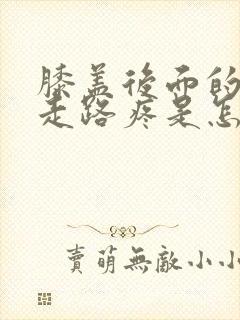 膝盖後面的
走路疼是怎
賣萌無敵小小